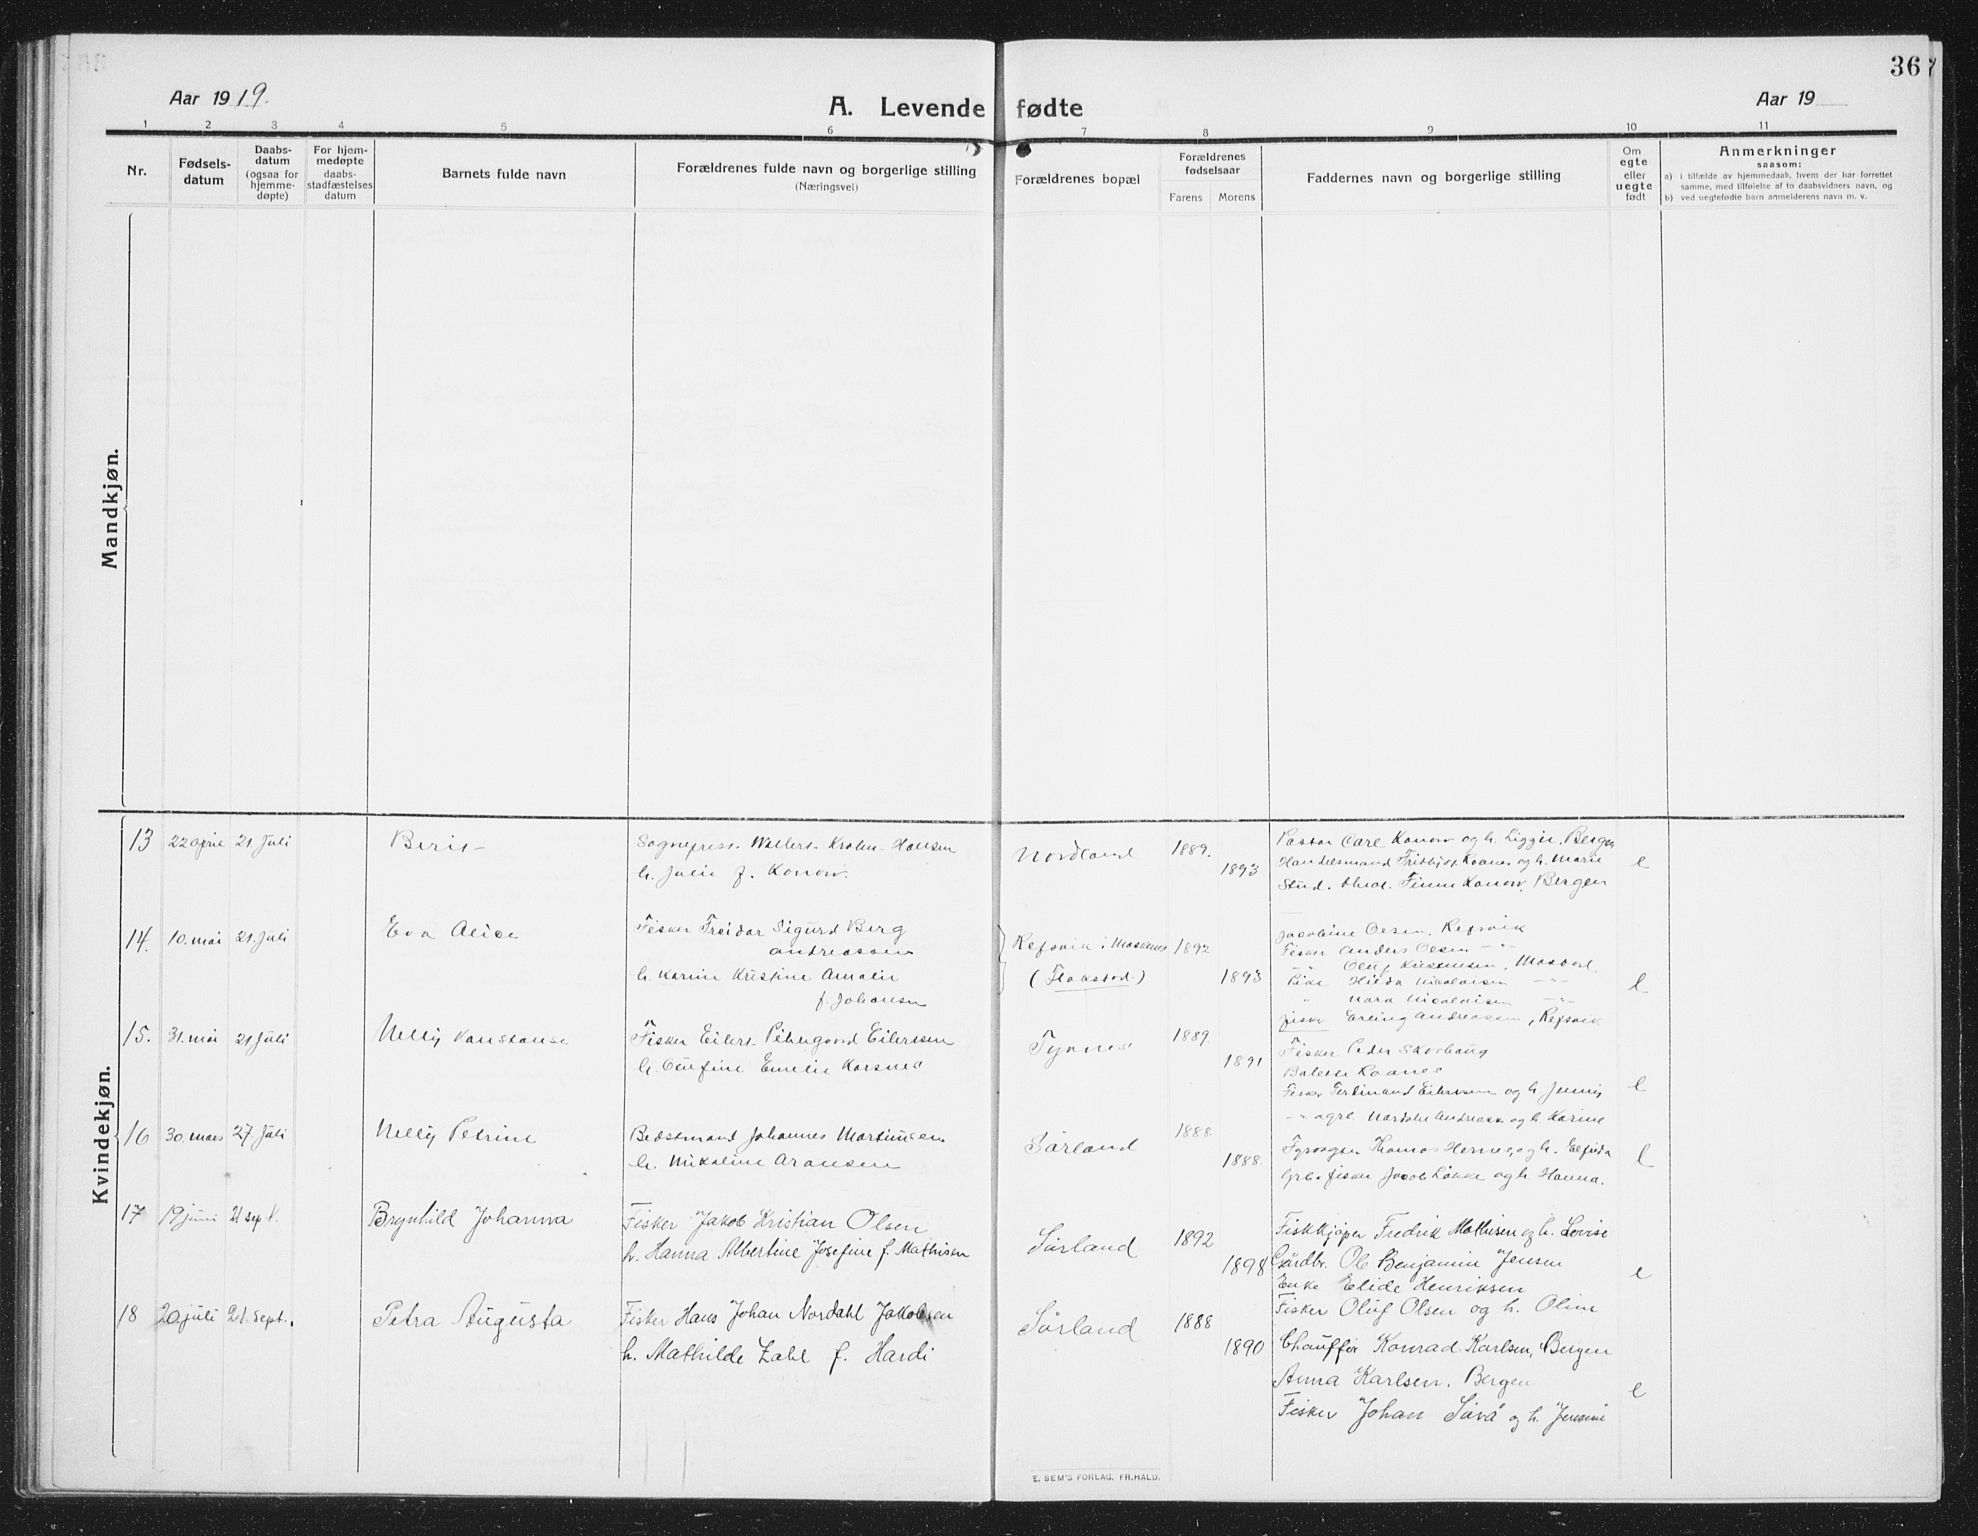 Aar 1919.
A. Levende fødte
Aar 19
36
1 2 3 4 5 6 7 8 9 10 11
Nr.
Fødsels-
datum
Daabs-
datum
(ogsaa for
hjemme-
døpte)
For hjem-
medøpte
daabs-
stadfæstelses
datum
Barnets fulde navn
Forældrenes fulde navn og borgerlige stilling
(Næringsvei)
Forældrenes bopæl
Forældrenes
fødselsaar
Farens Morens
Faddernes navn og borgerlige stilling
Om
egte
eller
uegte
født
Anmerkninger
saasom:
a) i tilfælde av hjemmedaab, hvem der har forrettet
samme, med tilføielse af to daabsvidners navn, og
b) ved uegtefødte barn anmelderens navn m. v.
Mandkjøn.
Kvindekjøn.
13 22 april 21 Juli Berit
Sogneprest Krohn-Hansen
h. Julie f. Konow.
Nordland 1889. 1893
Pastor Carl Konow og h. Bergen
Handelsmand og h. Marie
Stud. Finn Konow, Bergen
e
14. 10. mai 21. Juli Eva Alice
Fisker Freidar Sigurd Berg
Andreassen
h. Karine Kristine Amalie
f. Johansen
Refsvik i Moskenes
(Flakstad)
1892 1893
Jacobine Olsen, Refsvik
Fisker Anders Olsen -"-
Pike Hilda Nicolaisen -"-
" Nora Nicolaisen -"-
Fisker Erling Andreassen, Refsvik
e
15. 31. mai 21 Juli Nelly Konstanse
Fisker Eilert Eilertsen
h. Emelie Korsnes
Tynnes 1889. 1891
Fisker Peder Skorhaug
Fisker Ferdinand Eilertsen og h. Jenny
og h. Karine
e
16 30. mars 27 Juli Nelly Petrine
Johannes Martinsen
h. Nikoline Aronsen
Sørland 1888. 1888.
Thomas og h. Elfrida
fisker Jacob Løkke og h. Hanna.
e
17 19 juni 21 sept. Brynhild Johanna
Fisker Jakob Kristian Olsen
h. Hanna Albertine Josefine f. Mathisen
Sørland 1892 1898
Fiskkjøper Fredrik Mathisen og h. Lovise
Gårdbr. Ole Benjamin Jensen
Enke Elide Henriksen
e
18 20 juli 21. sept. Petra Augusta
Fisker Hans Johan Nordahl Jakobsen
h. Mathilde Zahl f. Hardi
Sørland 1888 1890
Fisker Oluf Olsen og h. Oline
Chauffør Konrad Karlsen, Bergen
Anna Karlsen. Bergen
Fisker Johan og h. Jensine
e
E. SEM'S FORLAG, FR.HALD.